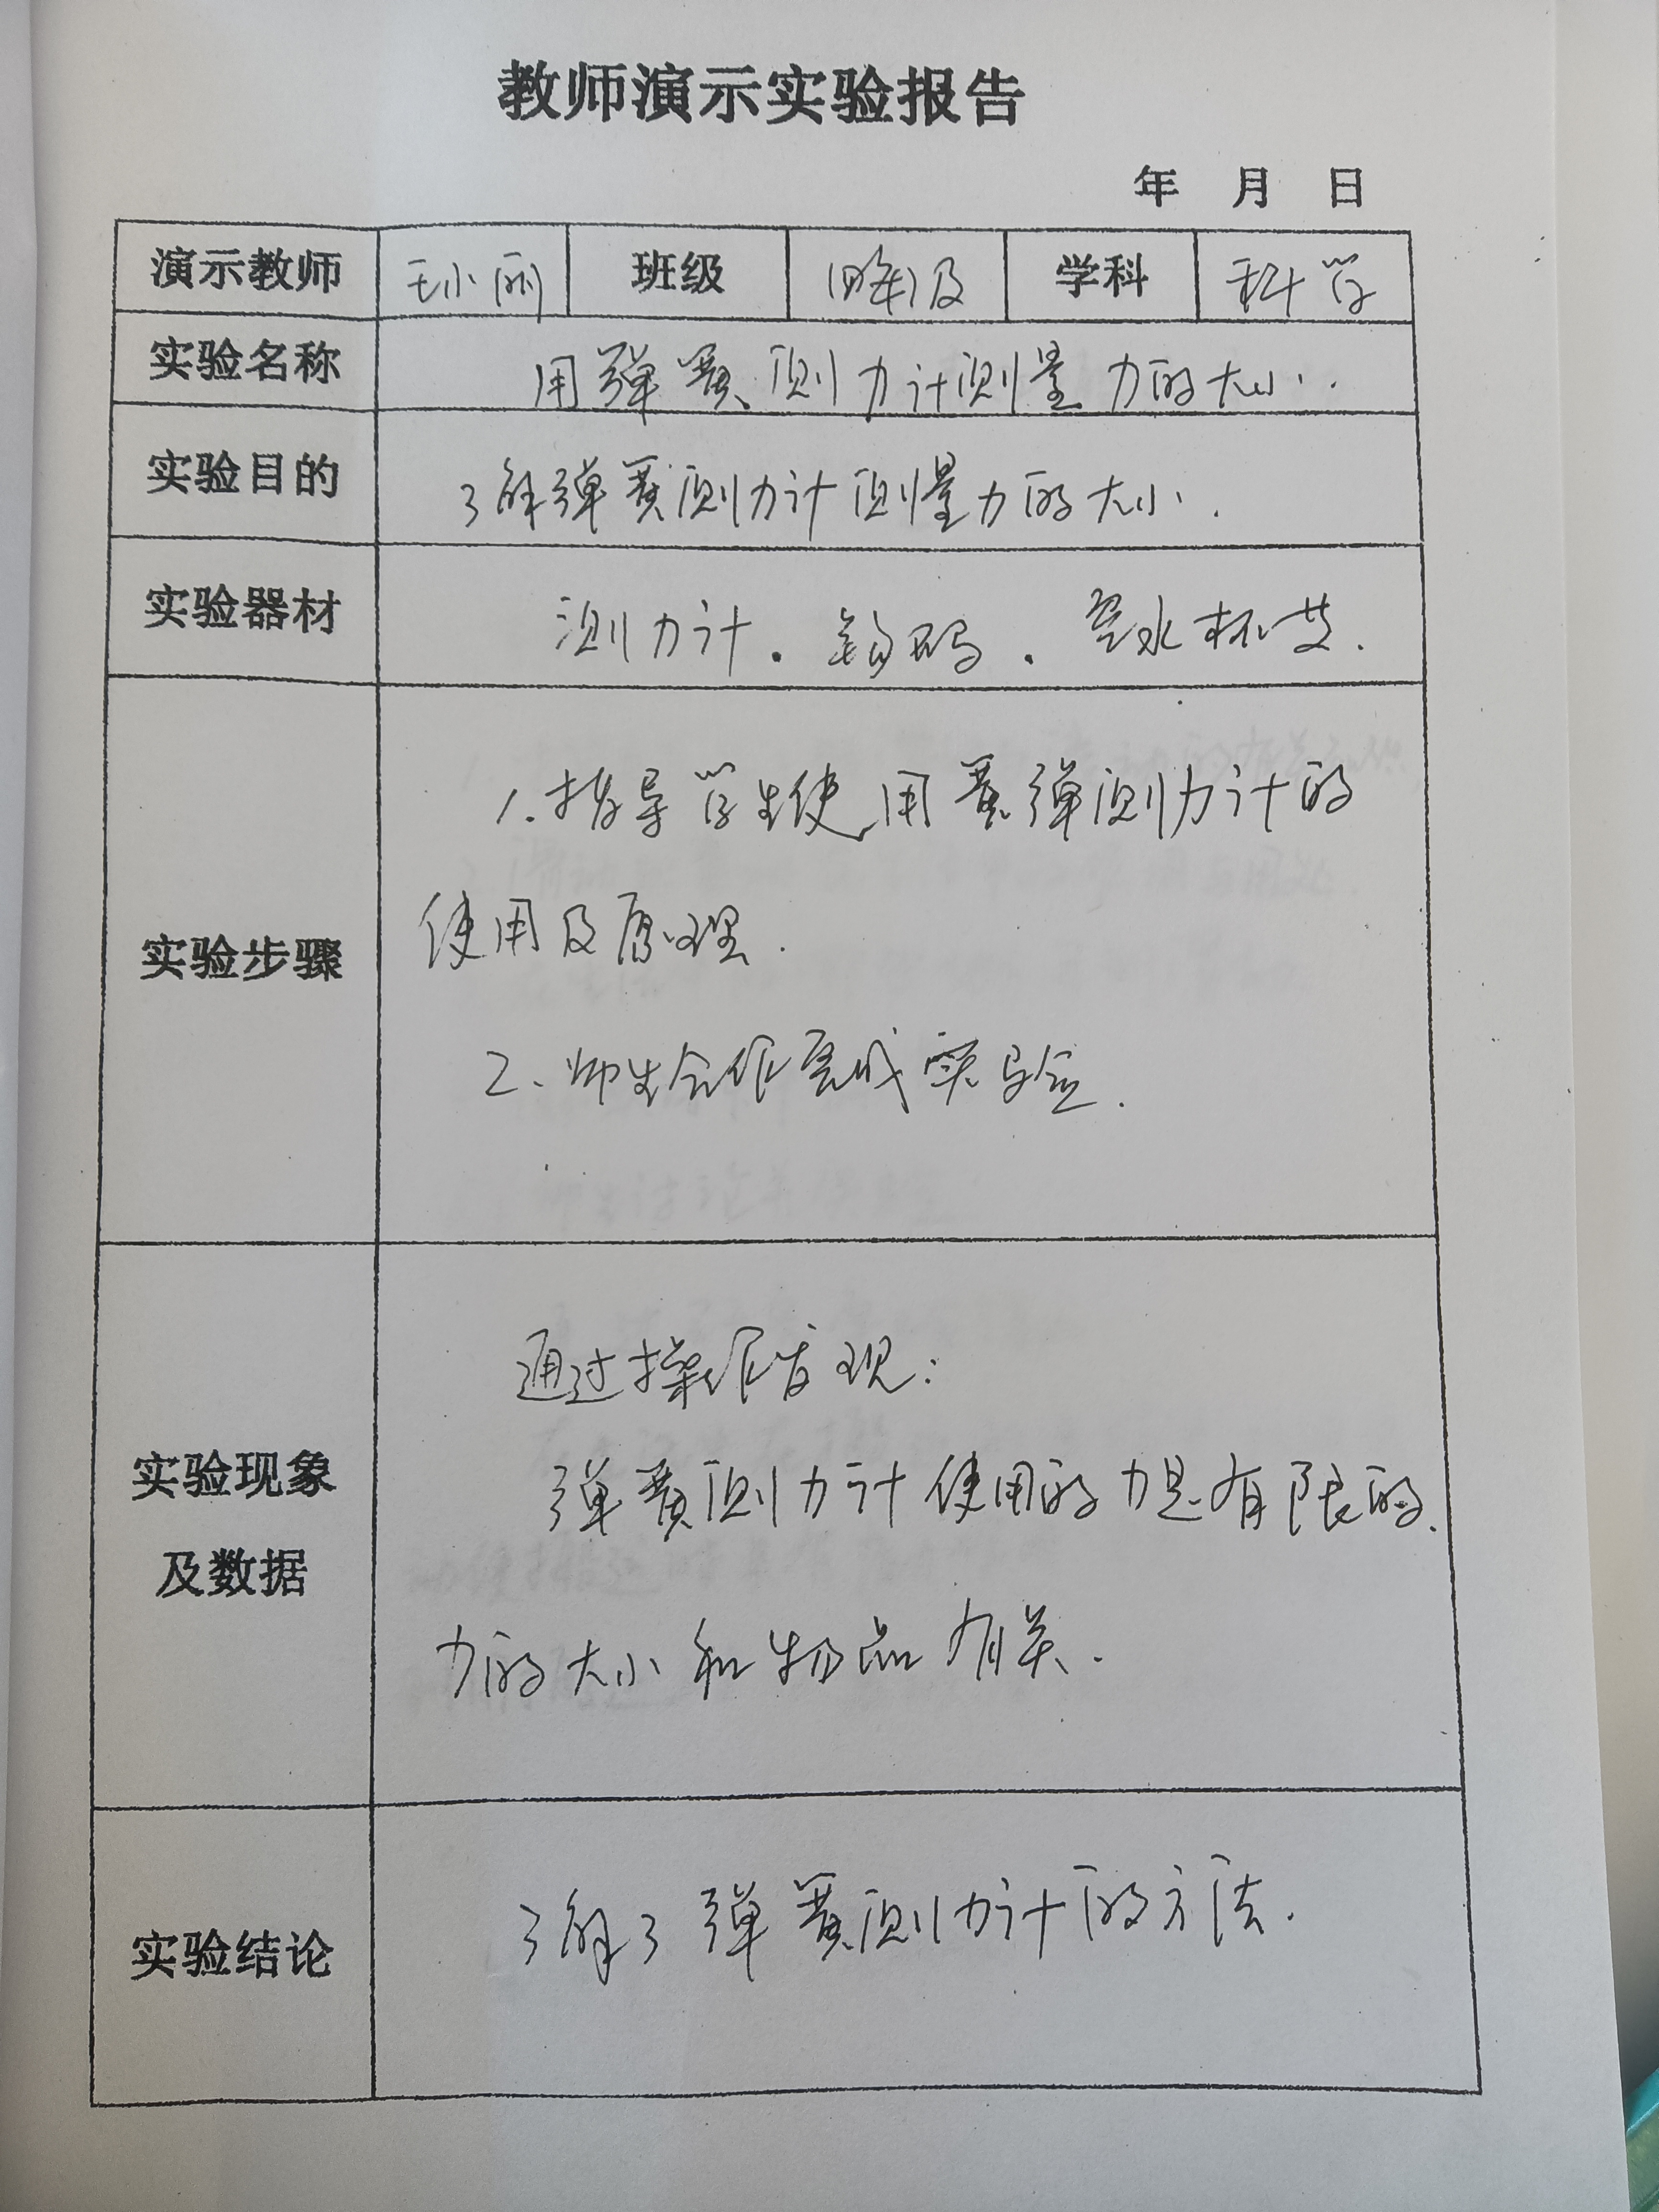 教师演示实验报告
年 月 日
演示教师 王小丽 班级 四年级 学科 科学
实验名称 用弹簧测力计测量力的大小.
实验目的 了解弹簧测力计测量力的大小.
实验器材 测力计. 钩码. 空水杯等.
实验步骤
1.指导学生使用簧弹测力计的
使用及原理.
2、师生合作完成实验.
实验现象
及数据
通过操作发现:
弹簧测力计使用的力是有限的.
力的大小和物品有关.
实验结论
了解了弹簧测力计的方法.